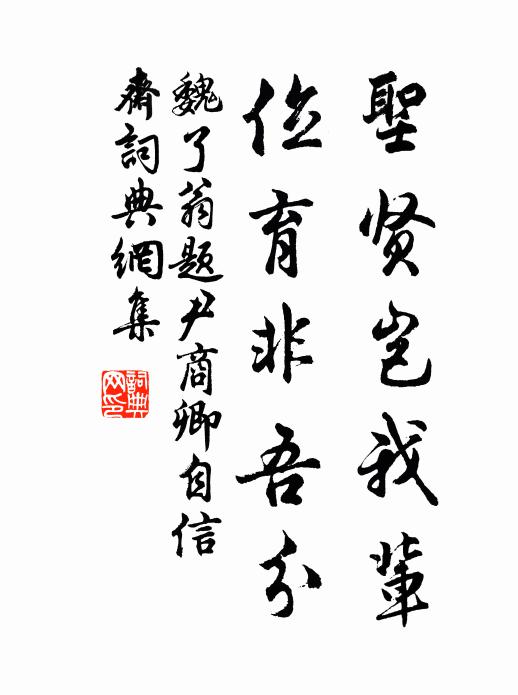 聖贤岂我輩
位育非吾分
魏了翁题尹商卿自信
齋詞典網集
詞典
网印